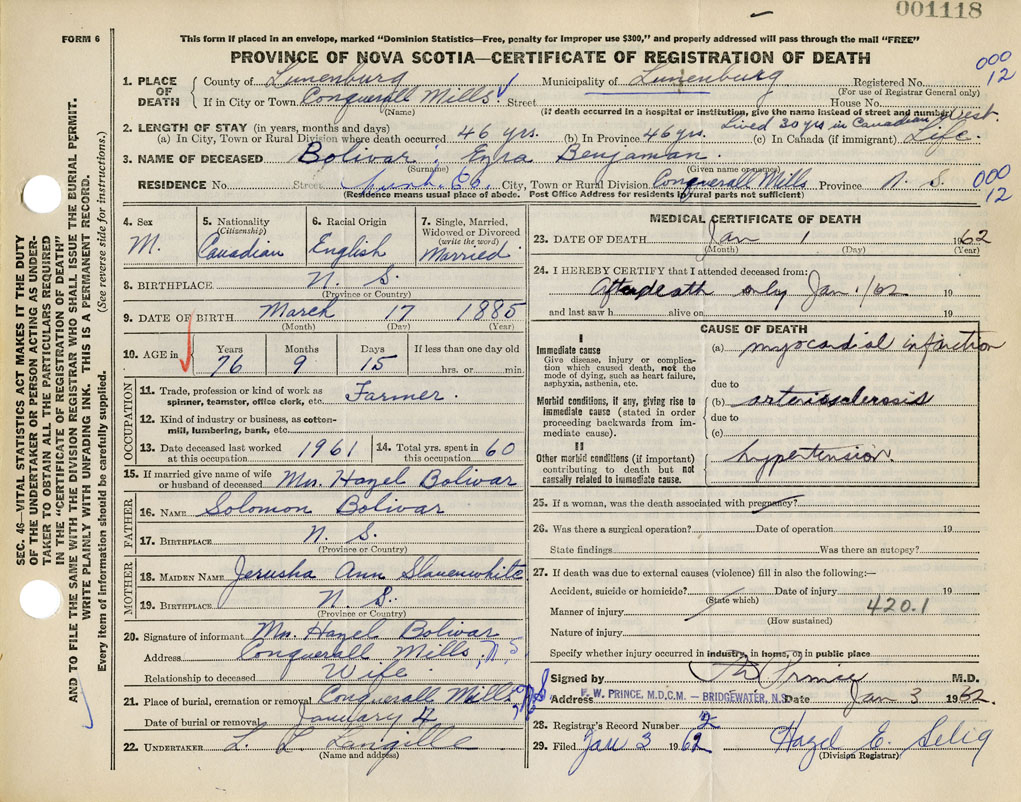 001118
FORM 6
This form if placed in an envelope, marked "Dominion Statistics—Free, penalty for improper use $300," and properly addressed will pass through the mail "FREE"
PROVINCE OF NOVA SCOTIA—CERTIFICATE OF REGISTRATION OF DEATH
000
12
1. PLACE OF DEATH
County of Lunenburg Municipality of Lunenburg Registered No.
(For use of Registrar General only)
If in City or Town Conquerall Mills Street House No.
(Name) (If death occurred in a hospital or institution, give the name instead of street and number)
Lived 30 yrs in Canadian West.
2. LENGTH OF STAY (in years, months and days)
(a) In City, Town or Rural Division where death occurred 46 yrs. (b) In Province 46 yrs. (c) In Canada (if immigrant) Life.
3. NAME OF DECEASED Bolivar, Ezra Benjaman.
(Surname) (Given name or names)
RESIDENCE No. Street Lunt. Co. City, Town or Rural Division Conquerall Mills Province N. S.
(Residence means usual place of abode. Post Office Address for residents in rural parts not sufficient)
000
12
4. Sex M.
5. Nationality (Citizenship) Canadian
6. Racial Origin English
7. Single, Married, Widowed or Divorced (write the word) Married
8. BIRTHPLACE N. S.
(Province or Country)
9. DATE OF BIRTH March 17 1885
(Month) (Day) (Year)
10. AGE in Years Months Days If less than one day old
76 9 15 hrs. or min.
OCCUPATION
11. Trade, profession or kind of work as spinner, teamster, office clerk, etc. Farmer.
12. Kind of industry or business, as cotton-mill, lumbering, bank, etc.
13. Date deceased last worked at this occupation 1961
14. Total yrs. spent in this occupation 60
15. If married give name of wife or husband of deceased Mrs. Hazel Bolivar
FATHER
16. NAME Solomon Bolivar
17. BIRTHPLACE N. S.
(Province or Country)
MOTHER
18. MAIDEN NAME Jerusha Ann Slauenwhite
19. BIRTHPLACE N. S.
(Province or Country)
20. Signature of informant Mrs. Hazel Bolivar
Address Conquerall Mills, N. S
Relationship to deceased Wife
21. Place of burial, cremation or removal Conquerall Mills, N.S
Date of burial or removal January 4
22. UNDERTAKER L. L. Langille
(Name and address)
MEDICAL CERTIFICATE OF DEATH
23. DATE OF DEATH Jan 1 1962
(Month) (Day) (Year)
24. I HEREBY CERTIFY that I attended deceased from:
After death only Jan. 1/62 19
and last saw h alive on 19
CAUSE OF DEATH
I
Immediate cause
Give disease, injury or complication which caused death, not the mode of dying, such as heart failure, asphyxia, asthenia, etc.
(a) myocardial infarction
due to
Morbid conditions, if any, giving rise to immediate cause (stated in order proceeding backwards from immediate cause).
(b) arteriosclerosis
due to
(c)
II
Other morbid conditions (if important) contributing to death but not causally related to immediate cause.
hypertension.
25. If a woman, was the death associated with pregnancy?
26. Was there a surgical operation? Date of operation 19
State findings Was there an autopsy?
27. If death was due to external causes (violence) fill in also the following:—
Accident, suicide or homicide? Date of injury 19
(State which)
420.1
Manner of injury
(How sustained)
Nature of injury
Specify whether injury occurred in industry, in home, or in public place
Signed by FW Prince M.D.
Address F. W. PRINCE, M.D.C.M. — BRIDGEWATER, N.S. Date Jan 3 1962.
28. Registrar's Record Number 2
29. Filed Jan 3 1962 Hazel E. Selig
(Division Registrar)
SEC. 46—VITAL STATISTICS ACT MAKES IT THE DUTY
OF THE UNDERTAKER OR PERSON ACTING AS UNDER-
TAKER TO OBTAIN ALL THE PARTICULARS REQUIRED
IN THE "CERTIFICATE OF REGISTRATION OF DEATH"
AND TO FILE THE SAME WITH THE DIVISION REGISTRAR WHO SHALL ISSUE THE BURIAL PERMIT.
WRITE PLAINLY WITH UNFADING INK. THIS IS A PERMANENT RECORD.
Every item of information should be carefully supplied. (See reverse side for instructions.)